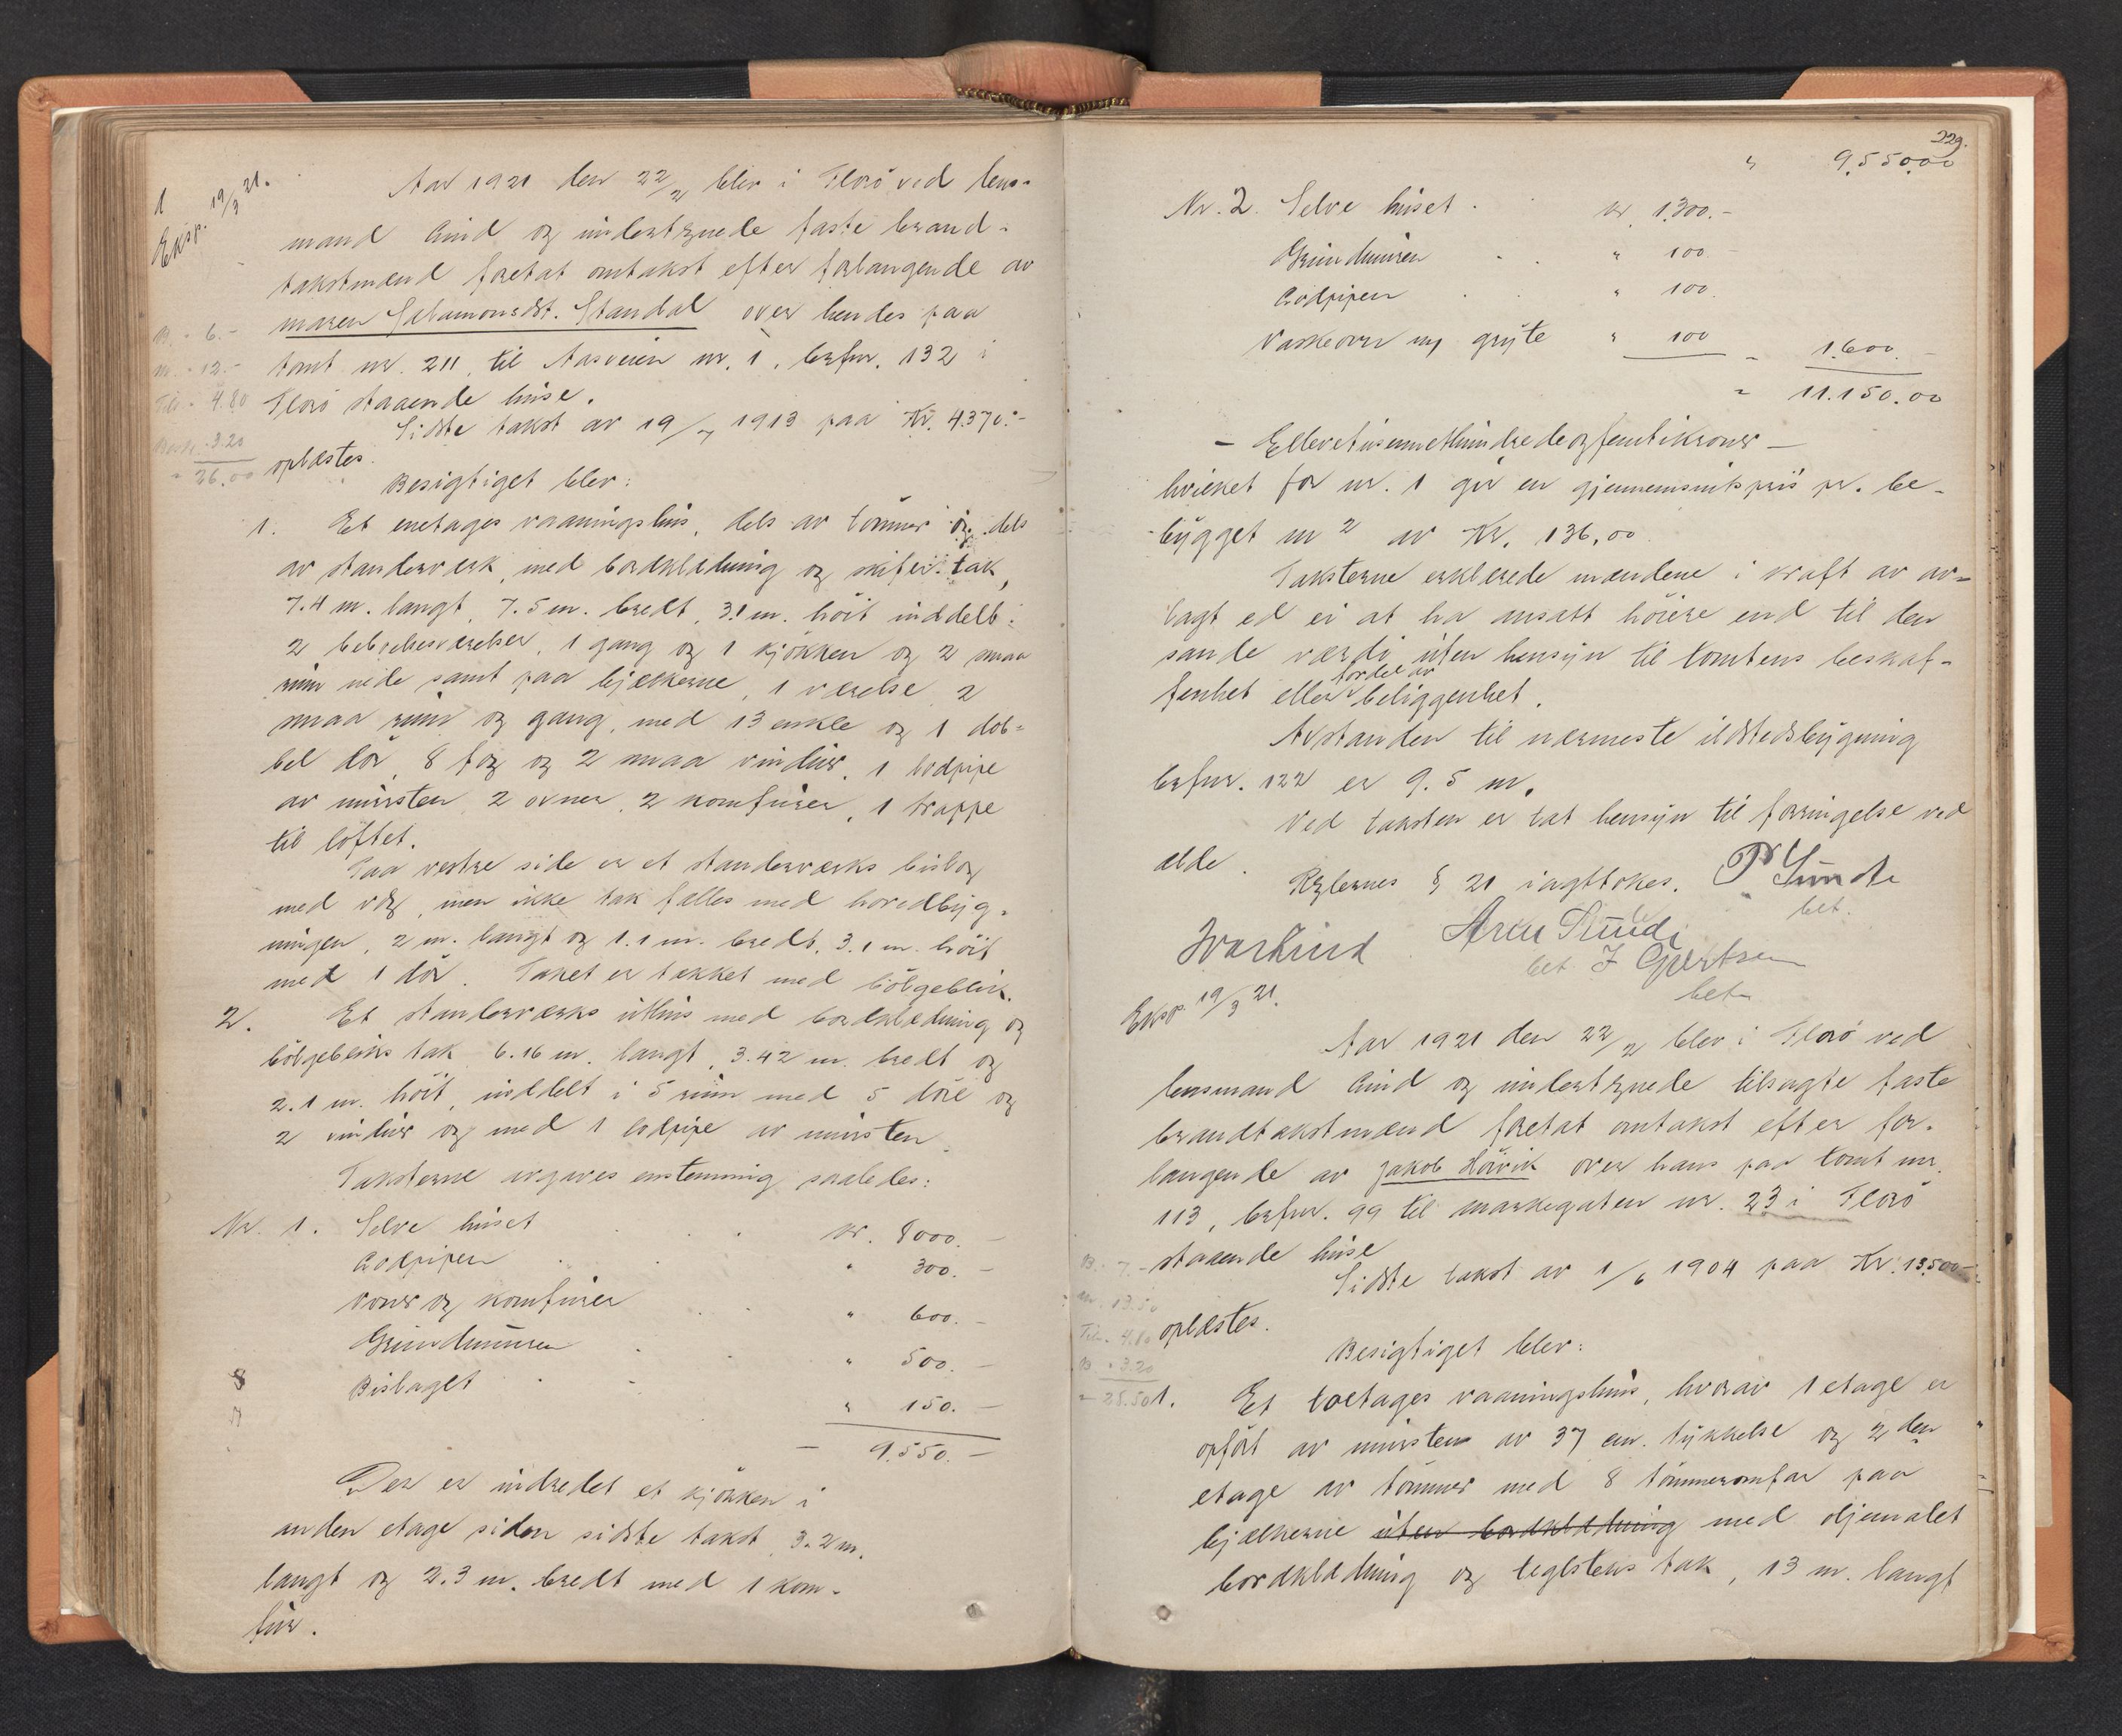 1
Eksp. 19/3 21.
Aar 1921 den 22/2 blev i Florö ved lens-
mand Lind og undertegnede faste brand-
takstmænd foretat omtakst efter forlangende av
Maren Salamonsdt. Standal over hendes paa
tomt nr. 211 til Aasveien nr. 1, brfnr. 132 i
Florö staaende huse.
Sidste takst av 19/7 1913 paa Kr. 4370.-
oplæstes.
B. - 6.-
M. - 12.-
Tilr. - 4.80
Besk. - 3.20
- 26.00
Besigtiget blev:
1. Et enetages vaaningshus, dels av tömmer og dels
av standerværk, med bordklædning og skifertak,
7.4 m. langt, 7.5 m. bredt, 3.1 m. höit inddelt i
2 beboelsesværelser, 1 gang og 1 kjökken og 2 smaa
rum nede samt paa bjælkerne, 1 værelse, 2
smaa rum og gang, med 13 enkle og 1 dob-
bel dör, 8 fag og 2 smaa vinduer, 1 brdpipe
av mursten, 2 ovner, 2 komfurer, 1 trappe
til loftet.
Paa vestre side er et standerværks bislag
med væg, men ikke tak fælles med hovedbyg-
ningen, 2 m. langt og 1.1 m. bredt, 3.1 m. höit
med 1 dör. Taket er tækket med bölgeblik.
2. Et standerværks uthus med bordklædning og
bölgebliks tak 6.16 m. langt, 3.42 m. bredt og
2.1 m. höit, inddelt i 5 rum med 5 döre og
2 vinduer og med 1 brdpipe av mursten.
Taksterne avgaves enstemmig saaledes:
Nr. 1. Selve huset kr. 8000.-
Brdpipen " 300.-
Ovner og komfurer " 600.-
Grundmuren " 500.-
Bislaget " 150.-
- 9.550.-
Der er indredet et kjökken i
anden etage siden sidste takst, 3.2 m.
langt og 2.3 m. bredt med 1 kom-
fur.
229.
" 9.550.00
Nr. 2. Selve huset kr. 1.300.-
Grundmuren " 100
Brdpipen " 100.
Vaskeovn m/ gryte " 100 - 1.600.-
- 11.150.00
- Ellevetusenetthundredeogfemtikroner -
hvilket for nr. 1 gir en gjennemsnitspris pr. be-
bygget m2 av Kr. 136,00
Taksterne erklærede mændene i kraft av av-
lagt ed ei at ha ansatt höiere end til den
sande værdi uten hensyn til tomtens beskaf-
fordel av
fenhet eller beliggenhet.
Avstanden til nærmeste ildstedsbygning
brfnr. 122 er 9.5 m.
Ved taksten er tat hensyn til forringelse ved
ælde.
Reglernes § 21 iagttokes. P Sunde
bet.
Ivar Lind Arne Sunde
bet J Gjertsen
bet
Eksp. 19/3 21.
Aar 1921 den 22/2 blev i Florö ved
lensmand Lind og undertegnede tilsagte faste
brandtakstmænd foretat omtakst efter for-
langende av Jakob Hövik over hans paa tomt nr.
113, brfnr. 99 til Markegaten nr. 23 i Florö
staaende huse
Sidste takst av 1/6 1904 paa Kr. 13.500-
oplæstes.
B. - 7.-
M. 13.50
Tilr. 4.80
B - 3.20
- 28.50
Besigtiget blev:
1. Et toetages vaaningshus, hvorav 1 etage er
opfört av mursten av 37 cm. tykkelse og 2den
etage av tömmer med 8 tömmeromfar paa
bjælkerne uten bordklædning med oljemalet
bordklædning og teglstens tak, 13 m. langt